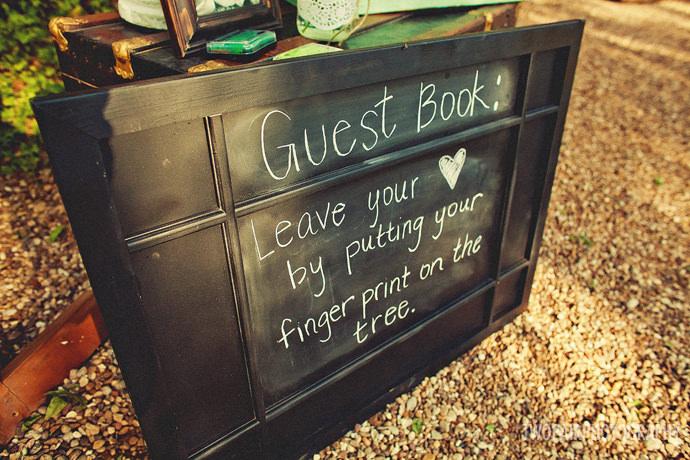 Guest Book:
Leave your
by putting your
finger print on the
tree.